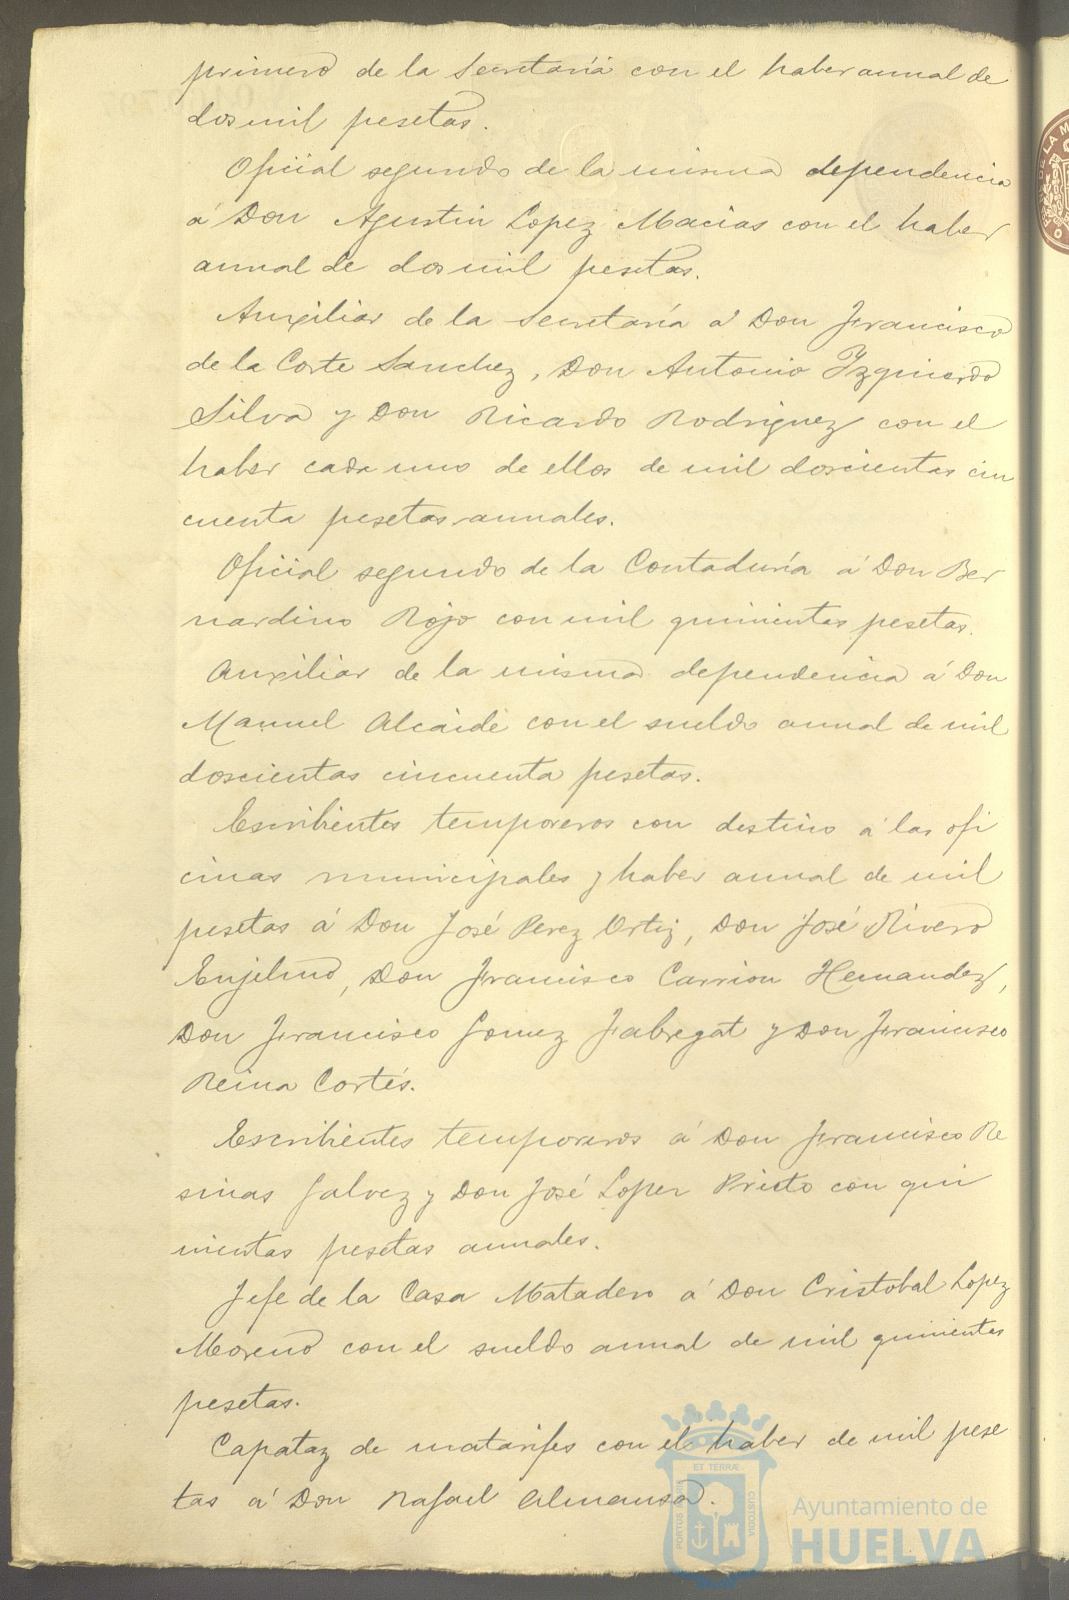 primero de la Secretaría con el haber annal de
dos mil pesetas.
Oficial segundo de la misma dependencia
á Don Agustin Lopez Macias con el haber
annal de dos mil pesetas.
Auxiliar de la Secretaría á Don Francisco
de la Corte Sanchez, Don Antonio Yzquierdo
Silva y Don Ricardo Rodriguez con el
haber cada uno de ellos de mil doscientas cin
cuenta pesetas annales.
Oficial segundo de la Contaduría á Don Ber
nardino Rojo con mil quinientas pesetas.
Auxiliar de la misma dependencia á Don
Manuel Alcaide con el sueldo annal de mil
doscientas cincuenta pesetas.
Escribientes temporeros con destino á las ofi
cinas municipales y haber annal de mil
pesetas á Don José Perez Ortiz, Don José Rivero
Don Francisco Carrion Hernandez,
Don Francisco Gomez Fabregat y Don Francisco
Reina Cortés.
Escribientes temporeros á Don Francisco Re
sinas Galvez y Don José Lopez Prieto con qui
nientas pesetas annales.
Jefe de la Casa Matadero á Don Cristobal Lopez
Moreno con el sueldo annal de mil quinientas
pesetas.
Capataz de matarifes con el haber de mil pese
tas á Don Rafael Almansa.
PORTUS MARIS ET TERRÆ CUSTODIA
Ayuntamiento de
HUELVA